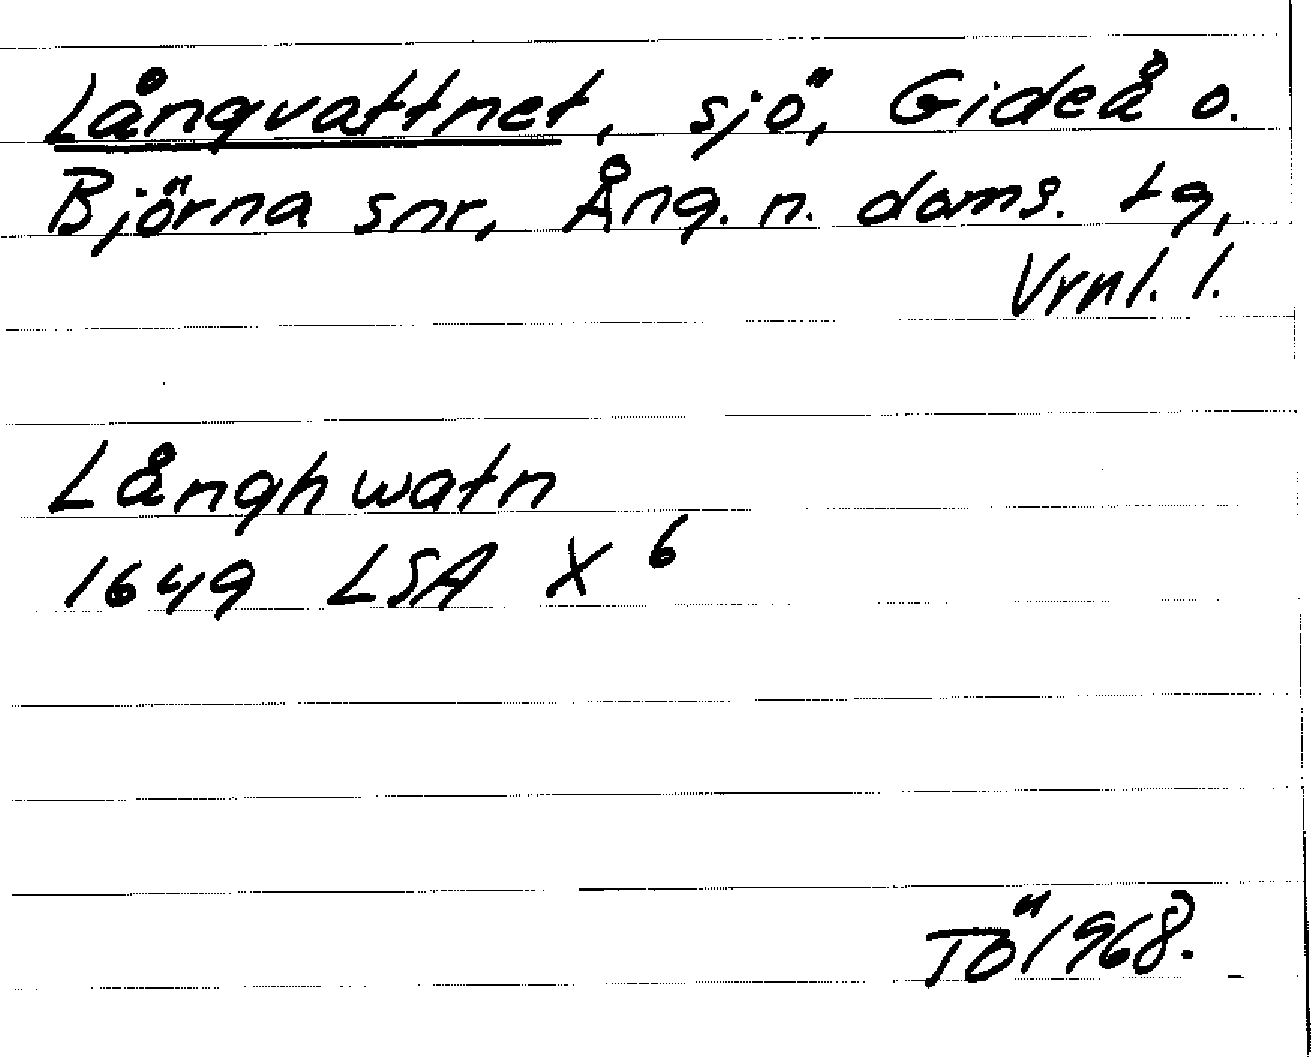 Långvattnet, sjö, Gideå o.
Björna snr, Ång. n. doms. tg,
Vrnl. l.
Långhwatn
1649 LSA X 6
TÖ 1968.